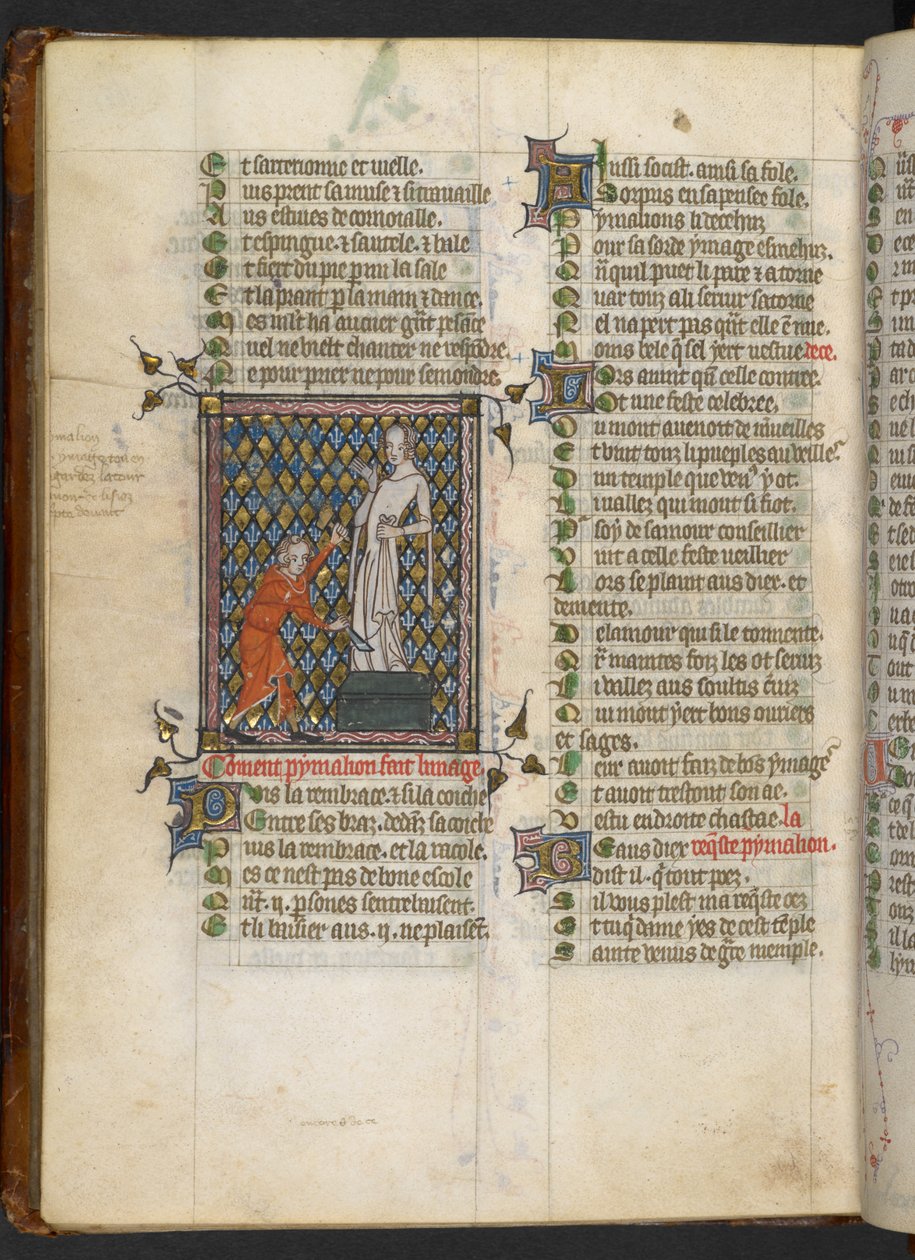 Et sarterionne et vielle.
Puis prent sa muse & si travaille
Aus estives de cornoialle.
Et espingue. & sautele. & bale
Et fiert du pie parmi la sale
Et la prant p la main & dance.
Mes mlt ha au cuer gnt pesace
Quel ne vielt chanter ne respondre.
Ne pour prier ne pour semondre.
Coment pymalion fait limage.
Puis la rembrace. & si la couche
Entre ses braz. dedaz sa couche
Puis la rembrace. et la racole.
Mes ce nest pas de bone escole
Qnt .ij. psones sentrebaisent.
Et li baisier aus .ij. ne plaisent.
Aussi socist. ainsi safole.
Sorpris en sa pensee fole.
Pymalions li decehuz
Pour sa sorde ymage esmehuz.
Qn quil puet li pare & atorne
Quar touz a li servir satorne
Nel napert pas qnt elle e nue.
Moins bele q sel yert vestue dece.
Lors avint qn celle contree.
Ot une feste celebree.
Ou mont avenoit de mveilles
Et vint touz li pueples au veilles
Dun temple que ven9 y ot.
Li vallez qui mout si fiot.
Pr soy de samour conseillier
Vint a celle feste veillier
Lors se plaint aus diex. et
demente.
De lamour qui si le tormente.
Qr maintes foiz les ot serviz
Li vallez aus soultis
Qui mout yert bons ouvriers
et sages.
Leur avoit faiz de bos ymages
Et avoit trestout son ae.
Vescu en droite chastae. la
Beaus diex reqste pymalion.
dist il. q tout poez.
Sil vous plest ma reqste oez
Et tu q dame yes de cest teple
Sainte venus de gre memple.